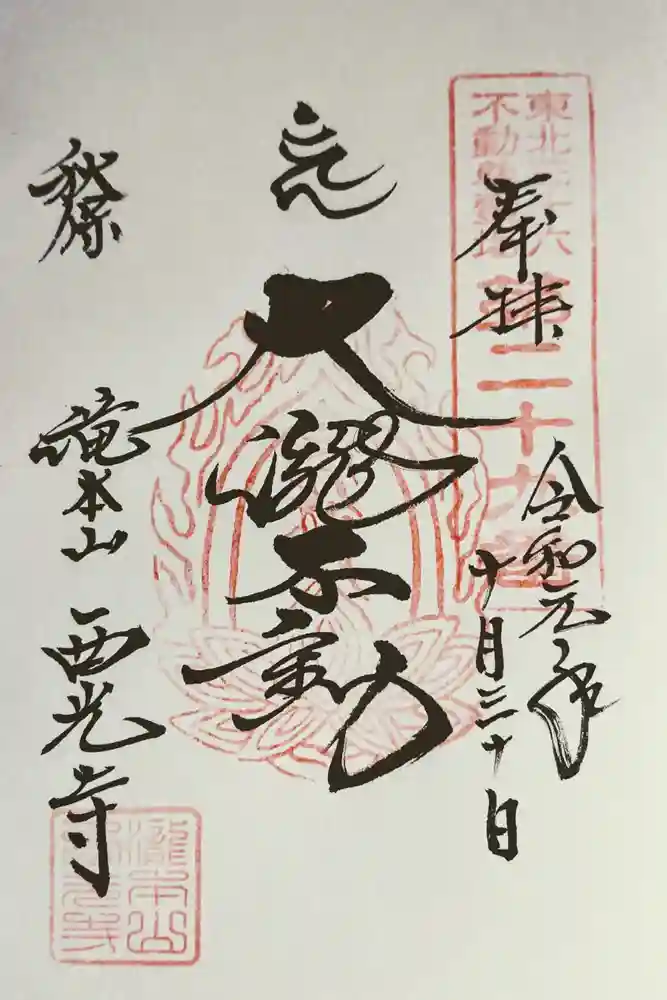 東北三十六
不動尊霊場
第二十九番
奉拝
令和元年
十月三十日
大瀧不動
秋保
滝本山
西光寺
瀧本山
西光寺